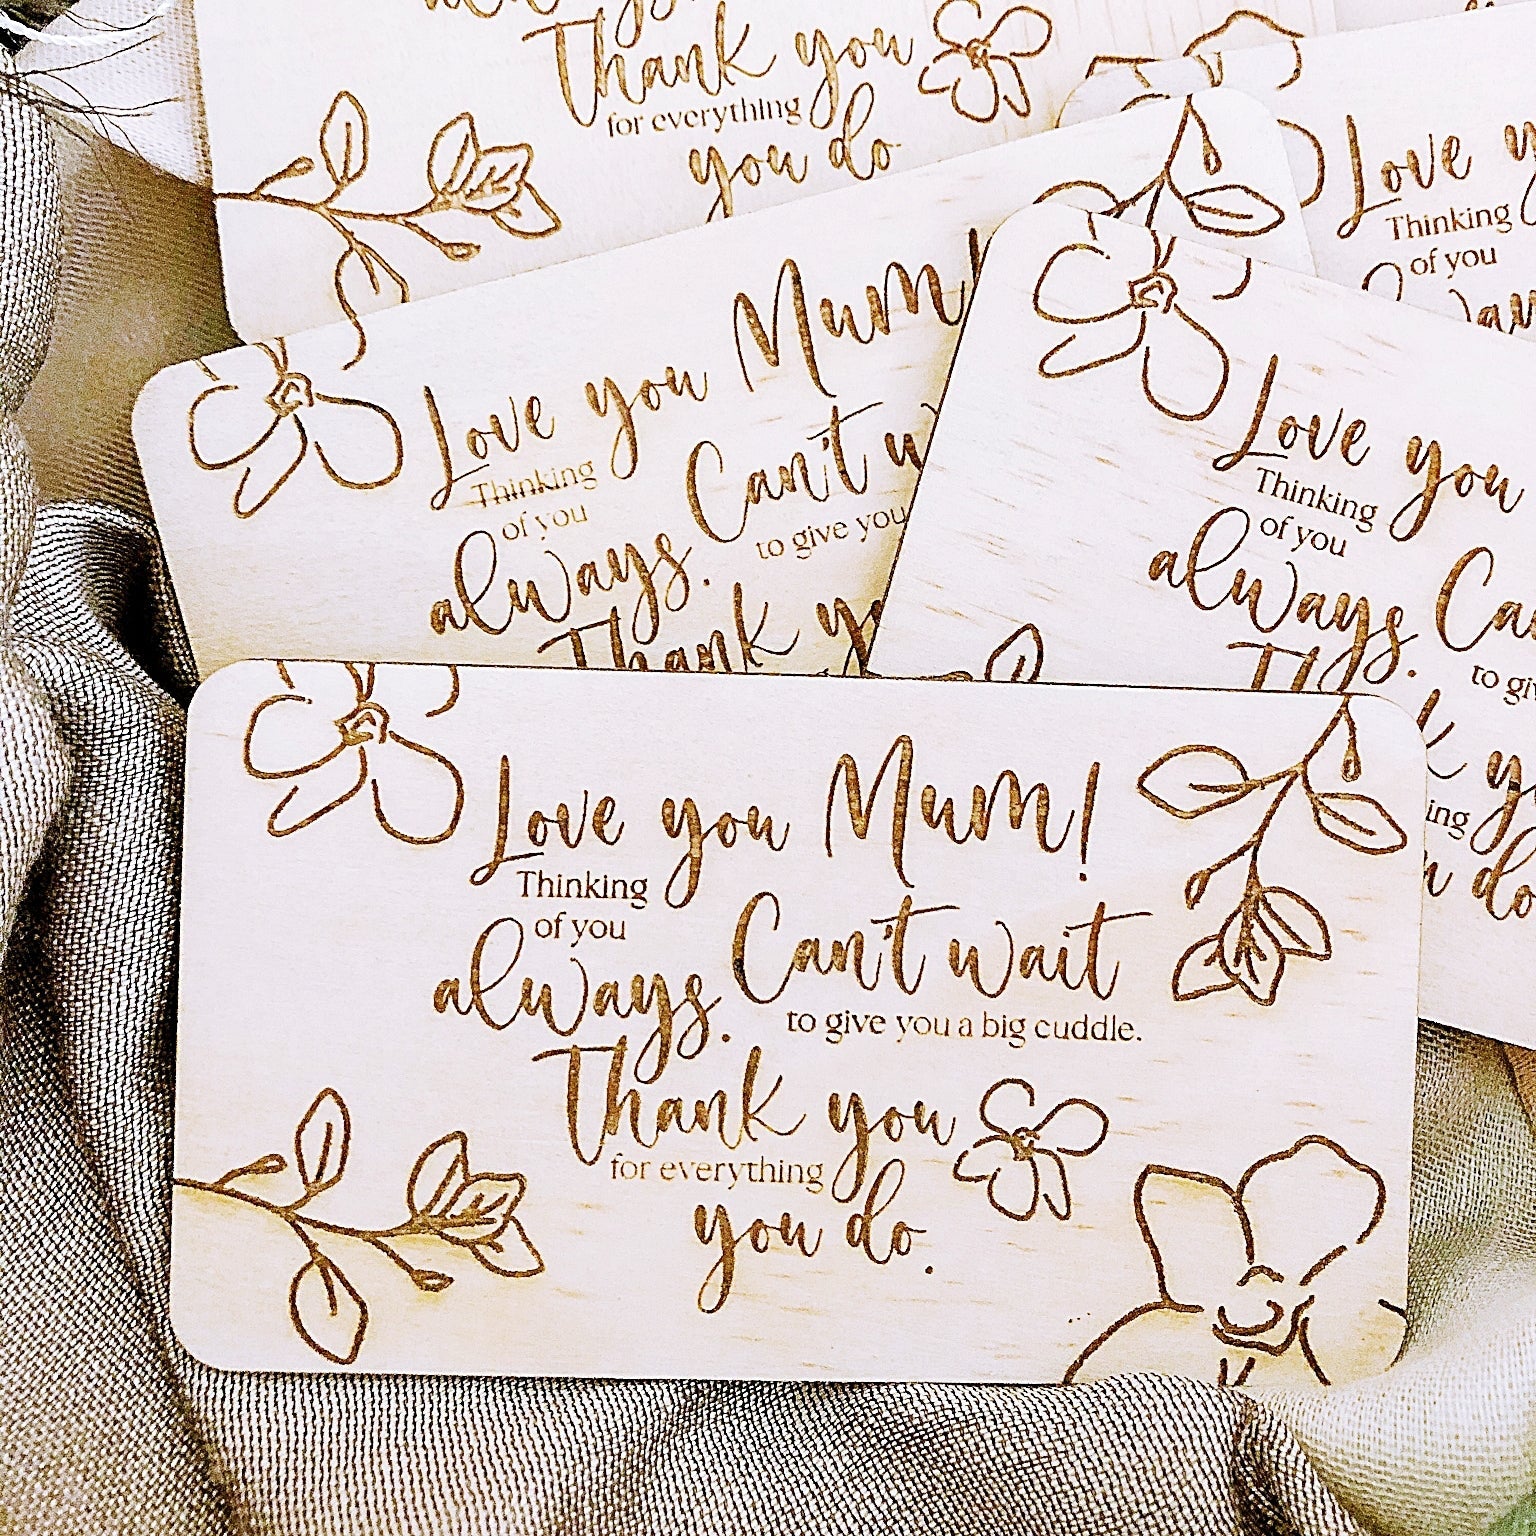 Thank you
for everything
you do
Love
Thinking
of you
Love you Mum!
Thinking
of you
always.
Can't
to give you
Thank
Love you
Thinking
of you
always.
to
you
do
Love you Mum!
Thinking
of you
always.
Can't wait
to give you a big cuddle.
Thank you
for everything
you do.